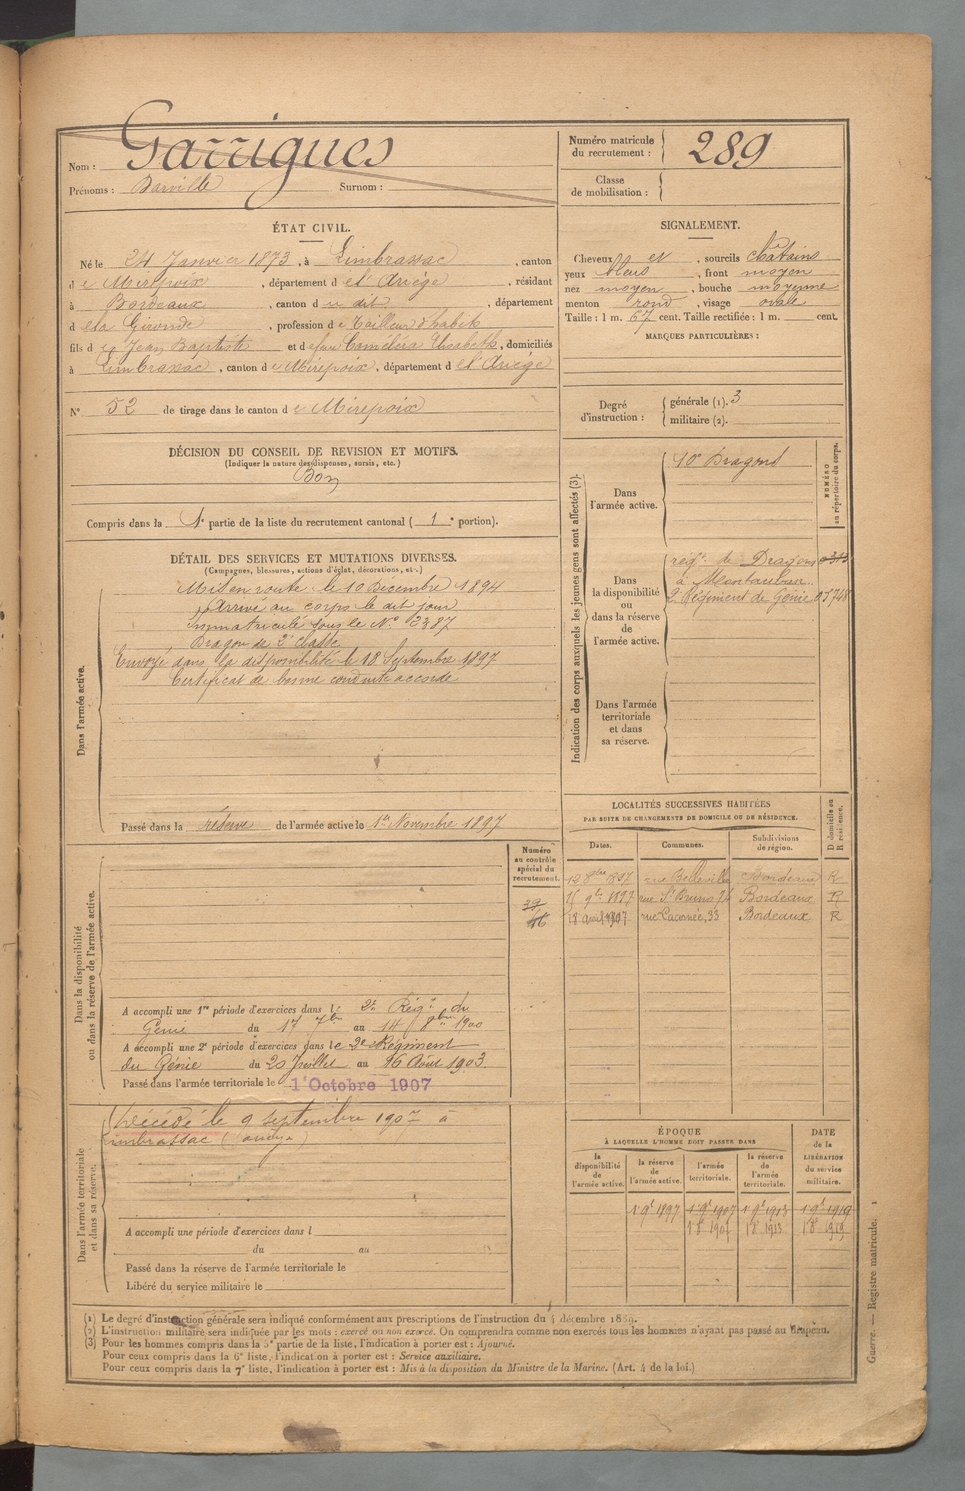 Nom : Garrigues
Prénoms : Barville Surnom :
Numéro matricule du recrutement : 289
Classe de mobilisation :
ÉTAT CIVIL.
Né le 24 Janvier 1873, à Limbrassac, canton
de Mirepoix, département de l'Ariège, résidant
à Bordeaux, canton du dit, département
de la Gironde, profession de Tailleur d'habits
fils de Jean Baptiste et de Elisabeth, domiciliés
à Limbrassac, canton de Mirepoix, département de l'Ariège
N° 52 de tirage dans le canton de Mirepoix
SIGNALEMENT.
Cheveux et, sourcils châtains
yeux bleus, front moyen
nez moyen, bouche moyenne
menton rond, visage ovale
Taille : 1 m. 67 cent. Taille rectifiée : 1 m. cent.
MARQUES PARTICULIÈRES :
Degré d'instruction : générale (1). 3
militaire (2).
DÉCISION DU CONSEIL DE REVISION ET MOTIFS.
(Indiquer la nature des dispenses, sursis, etc.)
Bon
Compris dans la 1e partie de la liste du recrutement cantonal ( 1e portion).
DÉTAIL DES SERVICES ET MUTATIONS DIVERSES.
(Campagnes, blessures, actions d'éclat, décorations, etc.)
Dans l'armée active.
Mis en route le 10 Décembre 1894
Arrivé au corps le dit jour
immatriculé sous le N° 2387
Dragon de 2e classe
Envoyé dans la disponibilité le 18 Septembre 1897
Certificat de bonne conduite accordé
Passé dans la réserve de l'armée active le 1er Novembre 1897
Indication des corps auxquels les jeunes gens sont affectés (3).
NUMÉRO au répertoire du corps.
Dans l'armée active.
10e Dragons
Dans la disponibilité ou dans la réserve de l'armée active.
régt. de Dragons
à Montauban
2e Régiment de Génie 05748
Dans l'armée territoriale et dans sa réserve.
LOCALITÉS SUCCESSIVES HABITÉES
PAR SUITE DE CHANGEMENTS DE DOMICILE OU DE RÉSIDENCE.
Dates. Communes. Subdivisions de région. D domicile ou R résidence.
12 8bre 1897 rue Belleville Bordeaux R
9bre 1897 rue St Bruno Bordeaux R
18 avril 1907 rue Lacornée, 33 Bordeaux R
Numéro au contrôle spécial du recrutement.
Dans la disponibilité ou dans la réserve de l'armée active.
A accompli une 1re période d'exercices dans le 2e Régt du
Génie du 17 7bre au 14 8bre 1900
A accompli une 2e période d'exercices dans le 2e Régiment
du Génie du 20 Juillet au 16 Août 1903.
Passé dans l'armée territoriale le 1er Octobre 1907
Dans l'armée territoriale et dans sa réserve.
Décédé le 9 septembre 1907 à
Limbrassac (Ariège)
A accompli une période d'exercices dans l
du au
Passé dans la réserve de l'armée territoriale le
Libéré du service militaire le
ÉPOQUE
À LAQUELLE L'HOMME DOIT PASSER DANS
DATE de la LIBÉRATION du service militaire.
la disponibilité de l'armée active. la réserve de l'armée active. l'armée territoriale. la réserve de l'armée territoriale.
1 9e 1897 1 9e 1907 1 9e 1913 1 9e 1919
1 8e 1907 1 8e 1913 1 8e 1919
(1) Le degré d'instruction générale sera indiqué conformément aux prescriptions de l'instruction du 4 décembre 1889.
(2) L'instruction militaire sera indiquée par les mots : exercé ou non exercé. On comprendra comme non exercés tous les hommes n'ayant pas passé au drapeau.
(3) Pour les hommes compris dans la 5e partie de la liste, l'indication à porter est : Ajourné.
Pour ceux compris dans la 6e liste, l'indication à porter est : Service auxiliaire.
Pour ceux compris dans la 7e liste, l'indication à porter est : Mis à la disposition du Ministre de la Marine. (Art. 4 de la loi.)
Guerre. — Registre matricule. 1